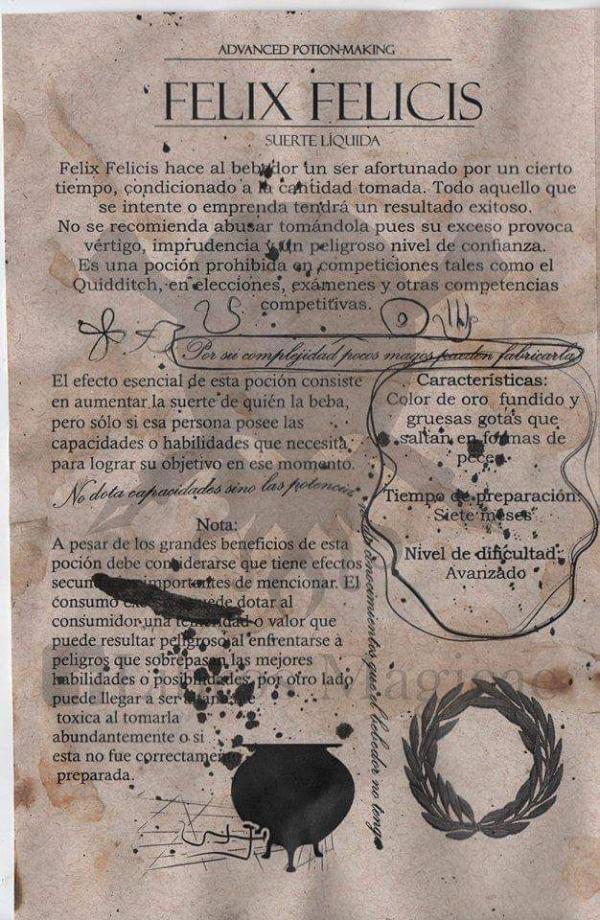 ADVANCED POTION-MAKING
FELIX FELICIS
SUERTE LÍQUIDA
Felix Felicis hace al bebedor un ser afortunado por un cierto
tiempo, condicionado a la cantidad tomada. Todo aquello que
se intente o emprenda tendrá un resultado exitoso.
No se recomienda abusar tomándola pues su exceso provoca
vértigo, imprudencia y un peligroso nivel de confianza.
Es una poción prohibida en competiciones tales como el
Quidditch, en elecciones, exámenes y otras competencias
competitivas.
Por su complejidad pocos magos pueden fabricarla
El efecto esencial de esta poción consiste
en aumentar la suerte de quién la beba,
pero sólo si esa persona posee las
capacidades o habilidades que necesita
para lograr su objetivo en ese momento.
No dota capacidades sino las potencia
conocimientos que el bebedor no tenga
Nota:
A pesar de los grandes beneficios de esta
poción debe considerarse que tiene efectos
secundarios importantes de mencionar. El
consumo puede dotar al
consumidor una temeridad o valor que
puede resultar peligroso al enfrentarse a
peligros que sobrepasen las mejores
habilidades o posibilidades, por otro lado
puede llegar a ser
toxica al tomarla
abundantemente o si
esta no fue correctamente
preparada.
Características:
Color de oro fundido y
gruesas gotas que
saltan en formas de
peces
Tiempo de preparación:
Siete meses
Nivel de dificultad:
Avanzado